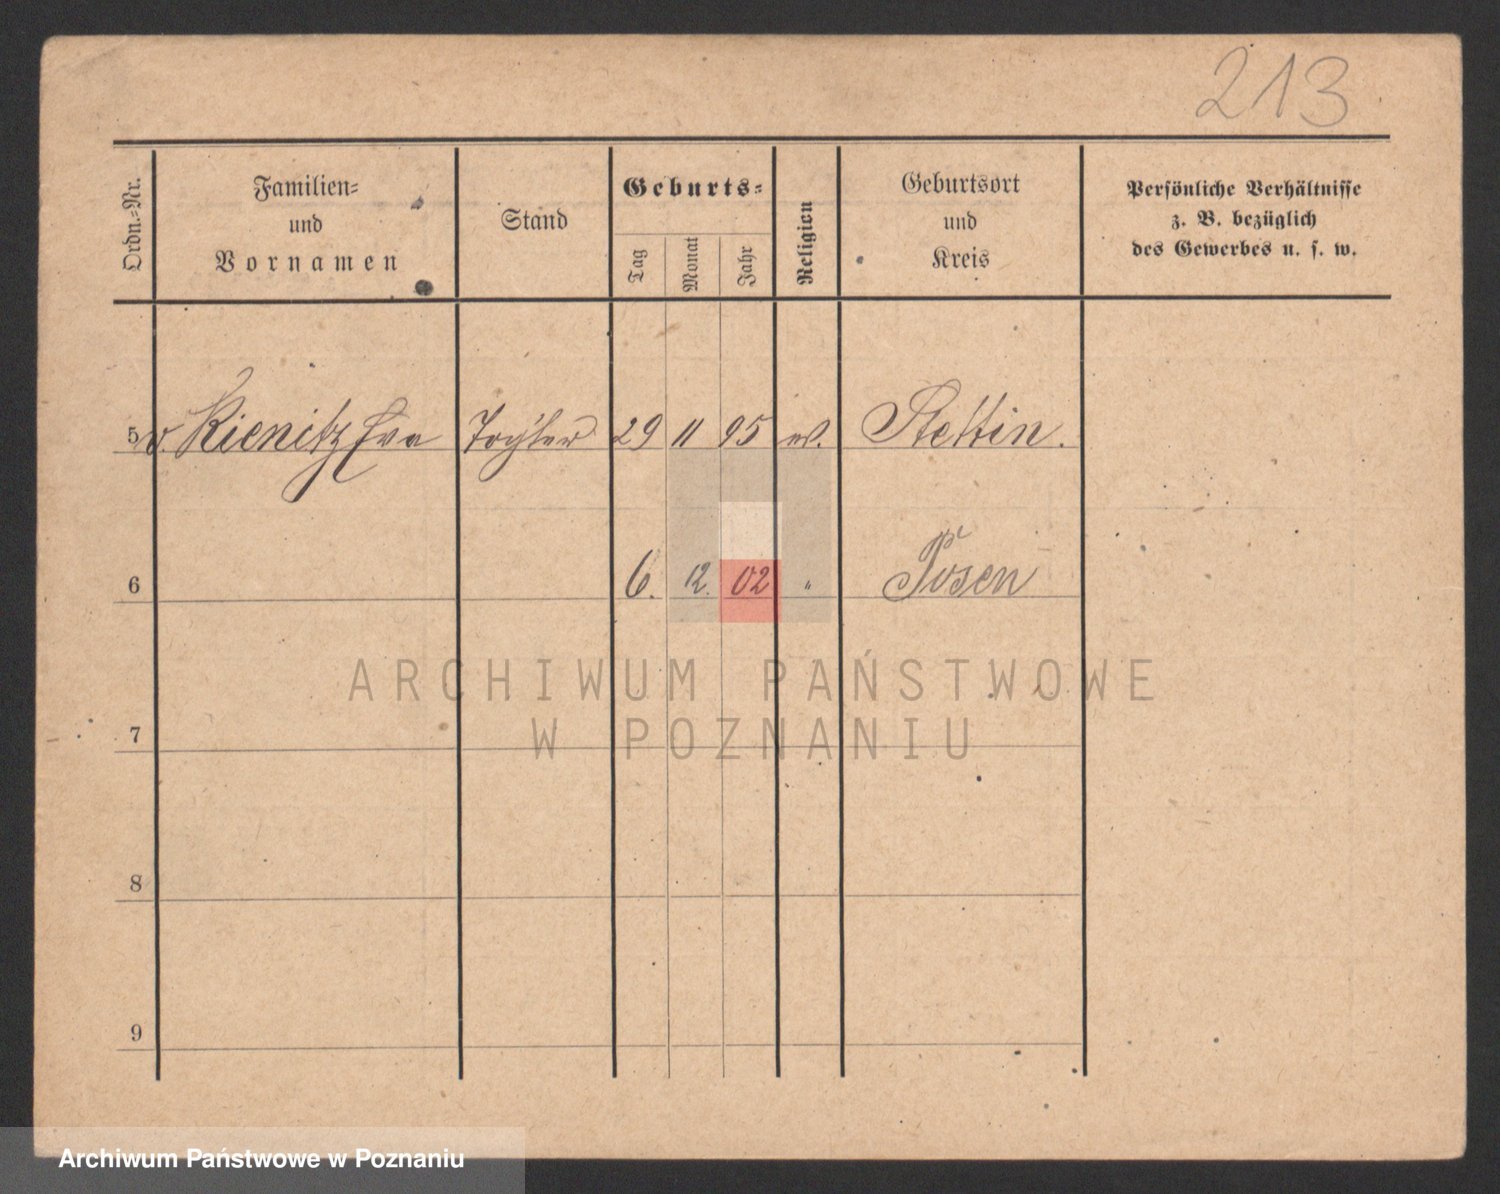 213
Ordn.-Nr.
Familien-
und
Vornamen
Stand
Geburts-
Tag
Monat
Jahr
Religion
Geburtsort
und
Kreis
Persönliche Verhältnisse
z. B. bezüglich
des Gewerbes u. s. w.
5 v. Kienitz Eva 29 11 95 Stettin.
6 6. 12. 02 " Posen
7
8
9
ARCHIWUM PAŃSTWOWE
W POZNANIU
Archiwum Państwowe w Poznaniu